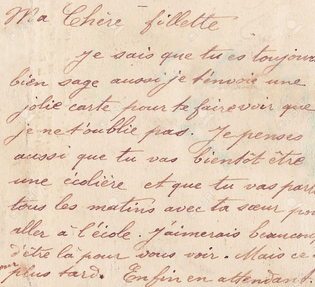 Ma Chère fillette
je sais que tu es toujours
bien sage aussi je t'envoie une
jolie carte pour te faire voir que
je ne t'oublie pas. Je penses
aussi que tu vas bientôt être
une écolière et que tu vas part
tous les matins avec ta sœur pou
aller à l'école. j'aimerais beaucoup
d'être là pour vous voir. Mais ce
plus tard. Enfin en attendant.